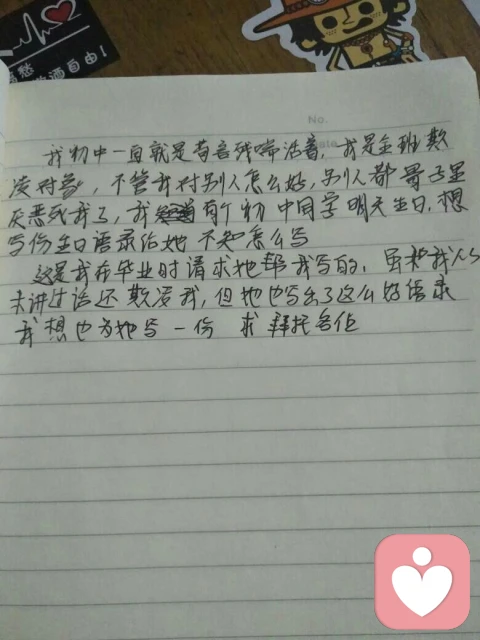 自由!
No.
我初中一直就是苟言残喘活着, 我是全班欺
凌对象, 不管我对别人怎么好, 别人都骨子里
厌恶死我了, 我 有个初中同学明天生日, 想
写份生日语录给她 不知怎么写
这是我在毕业时请求她帮我写的, 虽然我从
未讲过话还欺凌我, 但她也写出了这么好语录
我想也为她写一份 求 拜托各位